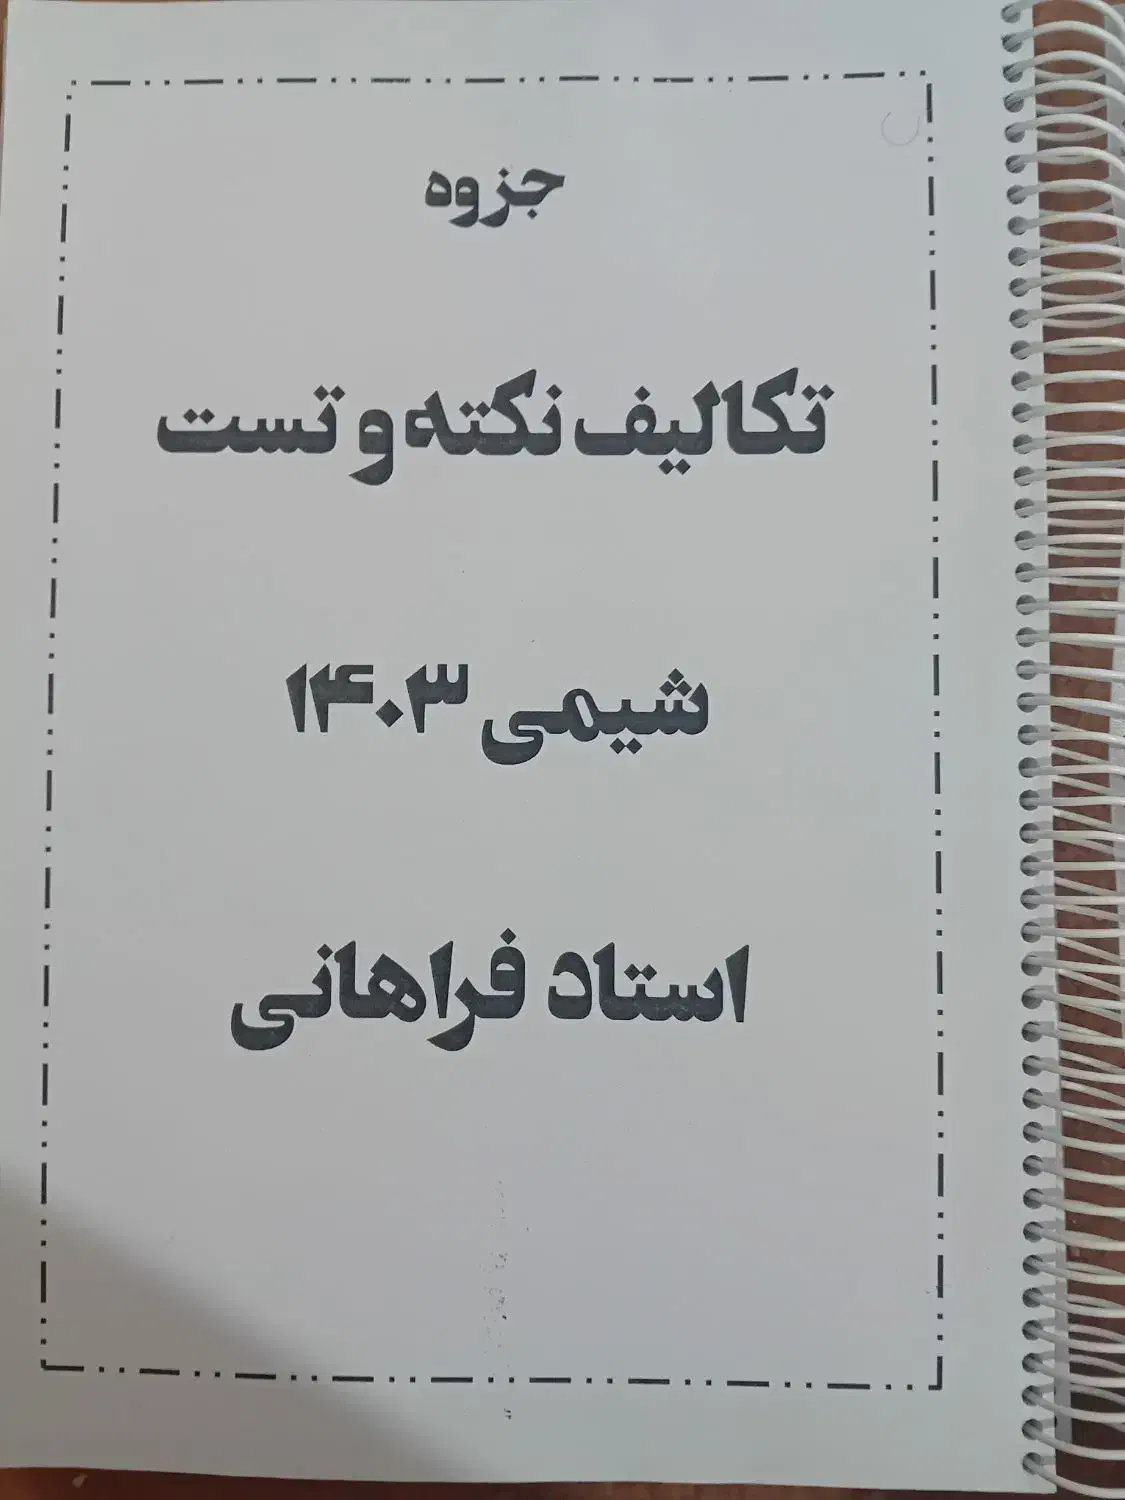 جزوه
تکالیف نکته و تست
شیمی ۱۴۰۳
استاد فراهانی